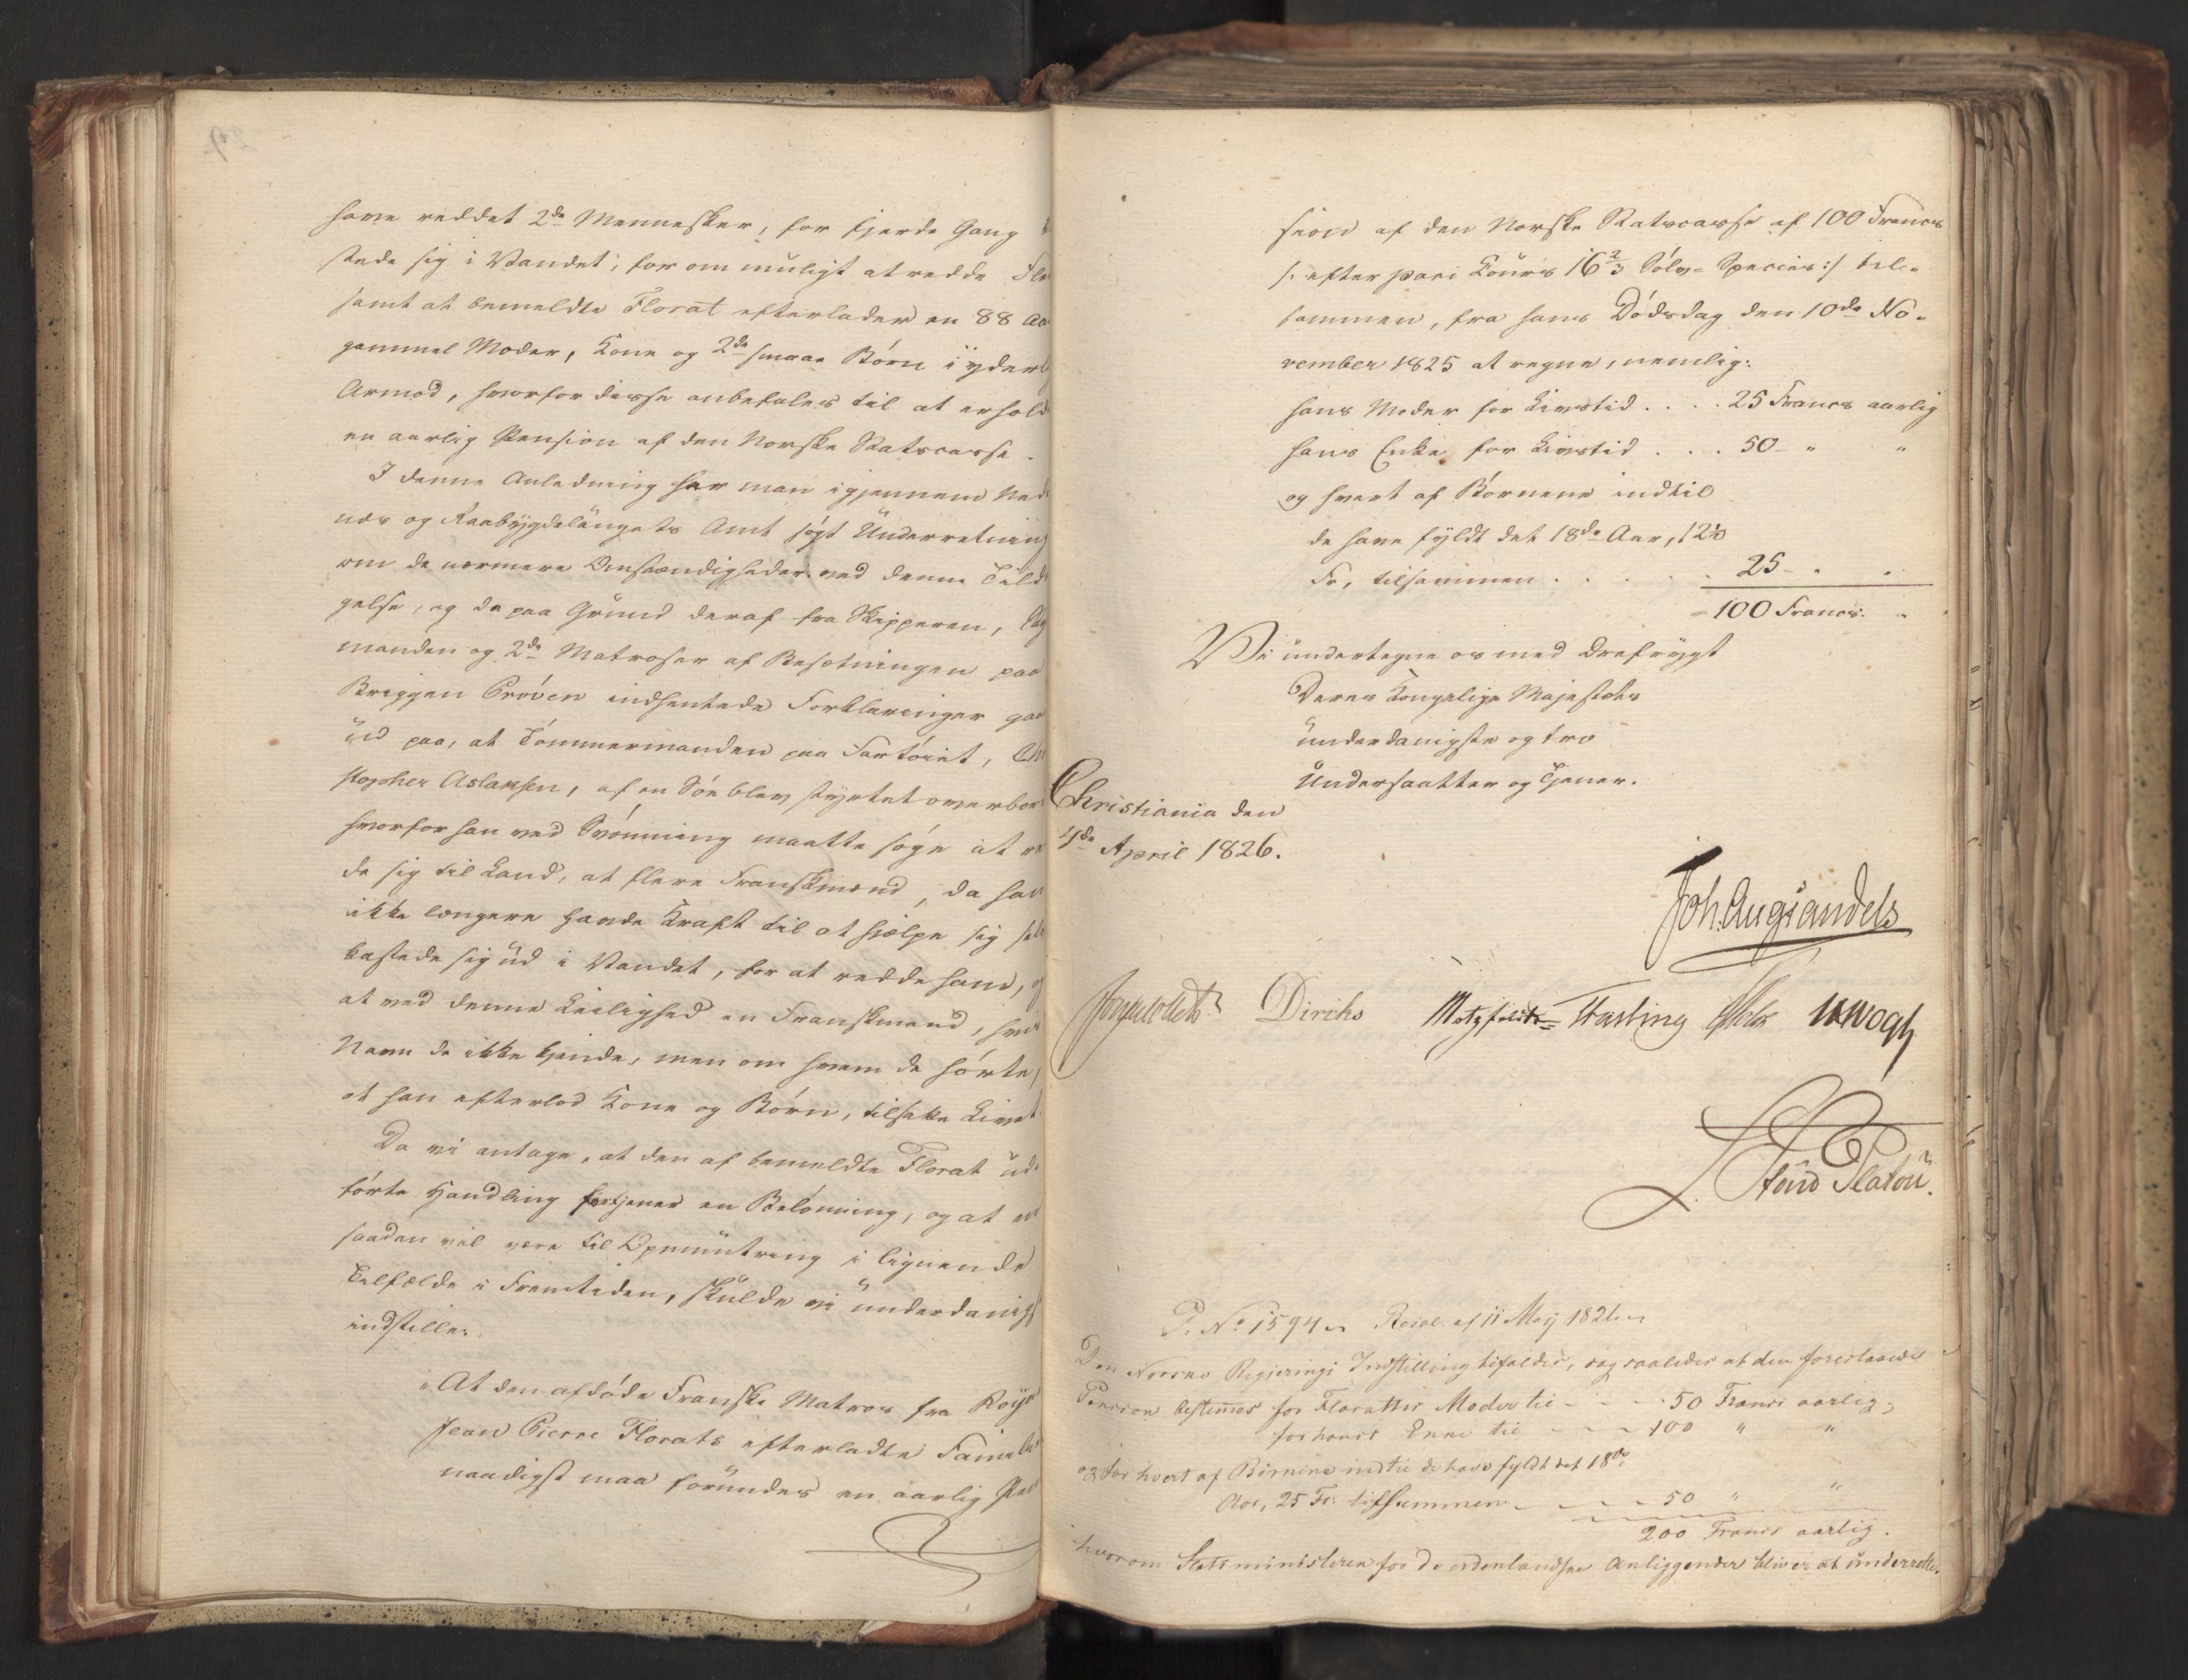 have reddet 2de Mennesker, for fjerde Gang
stede sig i Vandet, for om muligt at redde Flo
samt at bemeldte Florat efterlader en 88 Aa
gammel Moder, Kone og 2de smaae Børn i yderl
Armod, hvorfor disse anbefales til at erhold
en aarlig Pension af den Norske Statscasse.
I denne Anledning har man igjennem Ned
næs og Raabygdelaugets Amt søgt Underretning
om de nærmere Omstændigheder ved denne Tild
gelse, og da paa Grund deraf fra Skipperen, Sty
manden og 2de Matroser af Besætningen paa
Briggen Prøven indhentede Forklaringer gaa
ud paa, at Tømmermanden paa Fartøiet, Ch
stopher Aslaksen, af en Søe blev styrtet overbor
hvorfor han ved Svømning maatte søge at re
de sig til Land, at flere Franskmænd, da han
ikke længere havde Kraft til at hjælpe sig selv
kastede sig ud i Vandet, for at redde ham, o
at ved denne Leilighed en Franskmand, hvis
Navn de ikke kjende, men om hvem de hørte,
at han efterlod Kone og Børn, tilsatte Livet.
Da vi antage, at den af bemeldte Florat ud-
førte Handling fortjener en Belønning, og at en
saadan vil være til Opmuntring i lignende
Tilfælde i Fremtiden, skulde vi underdanigst
indstille:
"At den afdøde Franske Matros fra Roya
Jean Pierre Florats efterladte Famili
naadigst maa forundes en aarlig Pen
sion af den Norske Statscasse af 100 Francs
/: efter pari Cours 16 2/3 Sølv-Species :/ til-
sammen, fra hans Dødsdag den 10de No-
vember 1825 at regne, nemlig:
hans Moder for Livstid . . . . 25 Francs aarlig
hans Enke for Livstid . . . 50 - " "
og hvert af Børnene indtil
de have fyldt det 18de Aar, 12 1/2
Fr, tilsammen . . . . . . 25 - " "
- 100 Francs. "
Vi undertegne os med Ærefrygt
Deres Kongelige Majestæts
underdanigste og tro
Undersaatter og Tjener.
Christiania den
4de April 1826.
Joh. Aug Sandels
Diriks Motzfeldt Fasting Holst UWVogt
P. No 1594 Resol. af 11 Maj 1826
Den Norske Regjerings Indstilling bifaldes, dog saaledes at den foreslaaede
Pension bestemmes for Florattes Moder til - - - 50 Francs aarlig,
for hans Enke til - - - 100 " "
og for hvert af Børnene indtil de have fyldt det 18de
Aar, 25 Fr: tilsammen - - - - 50 " "
200 Francs aarlig.
hvorom Statsministeren for De udenlandske Anliggender bliver at underrette.